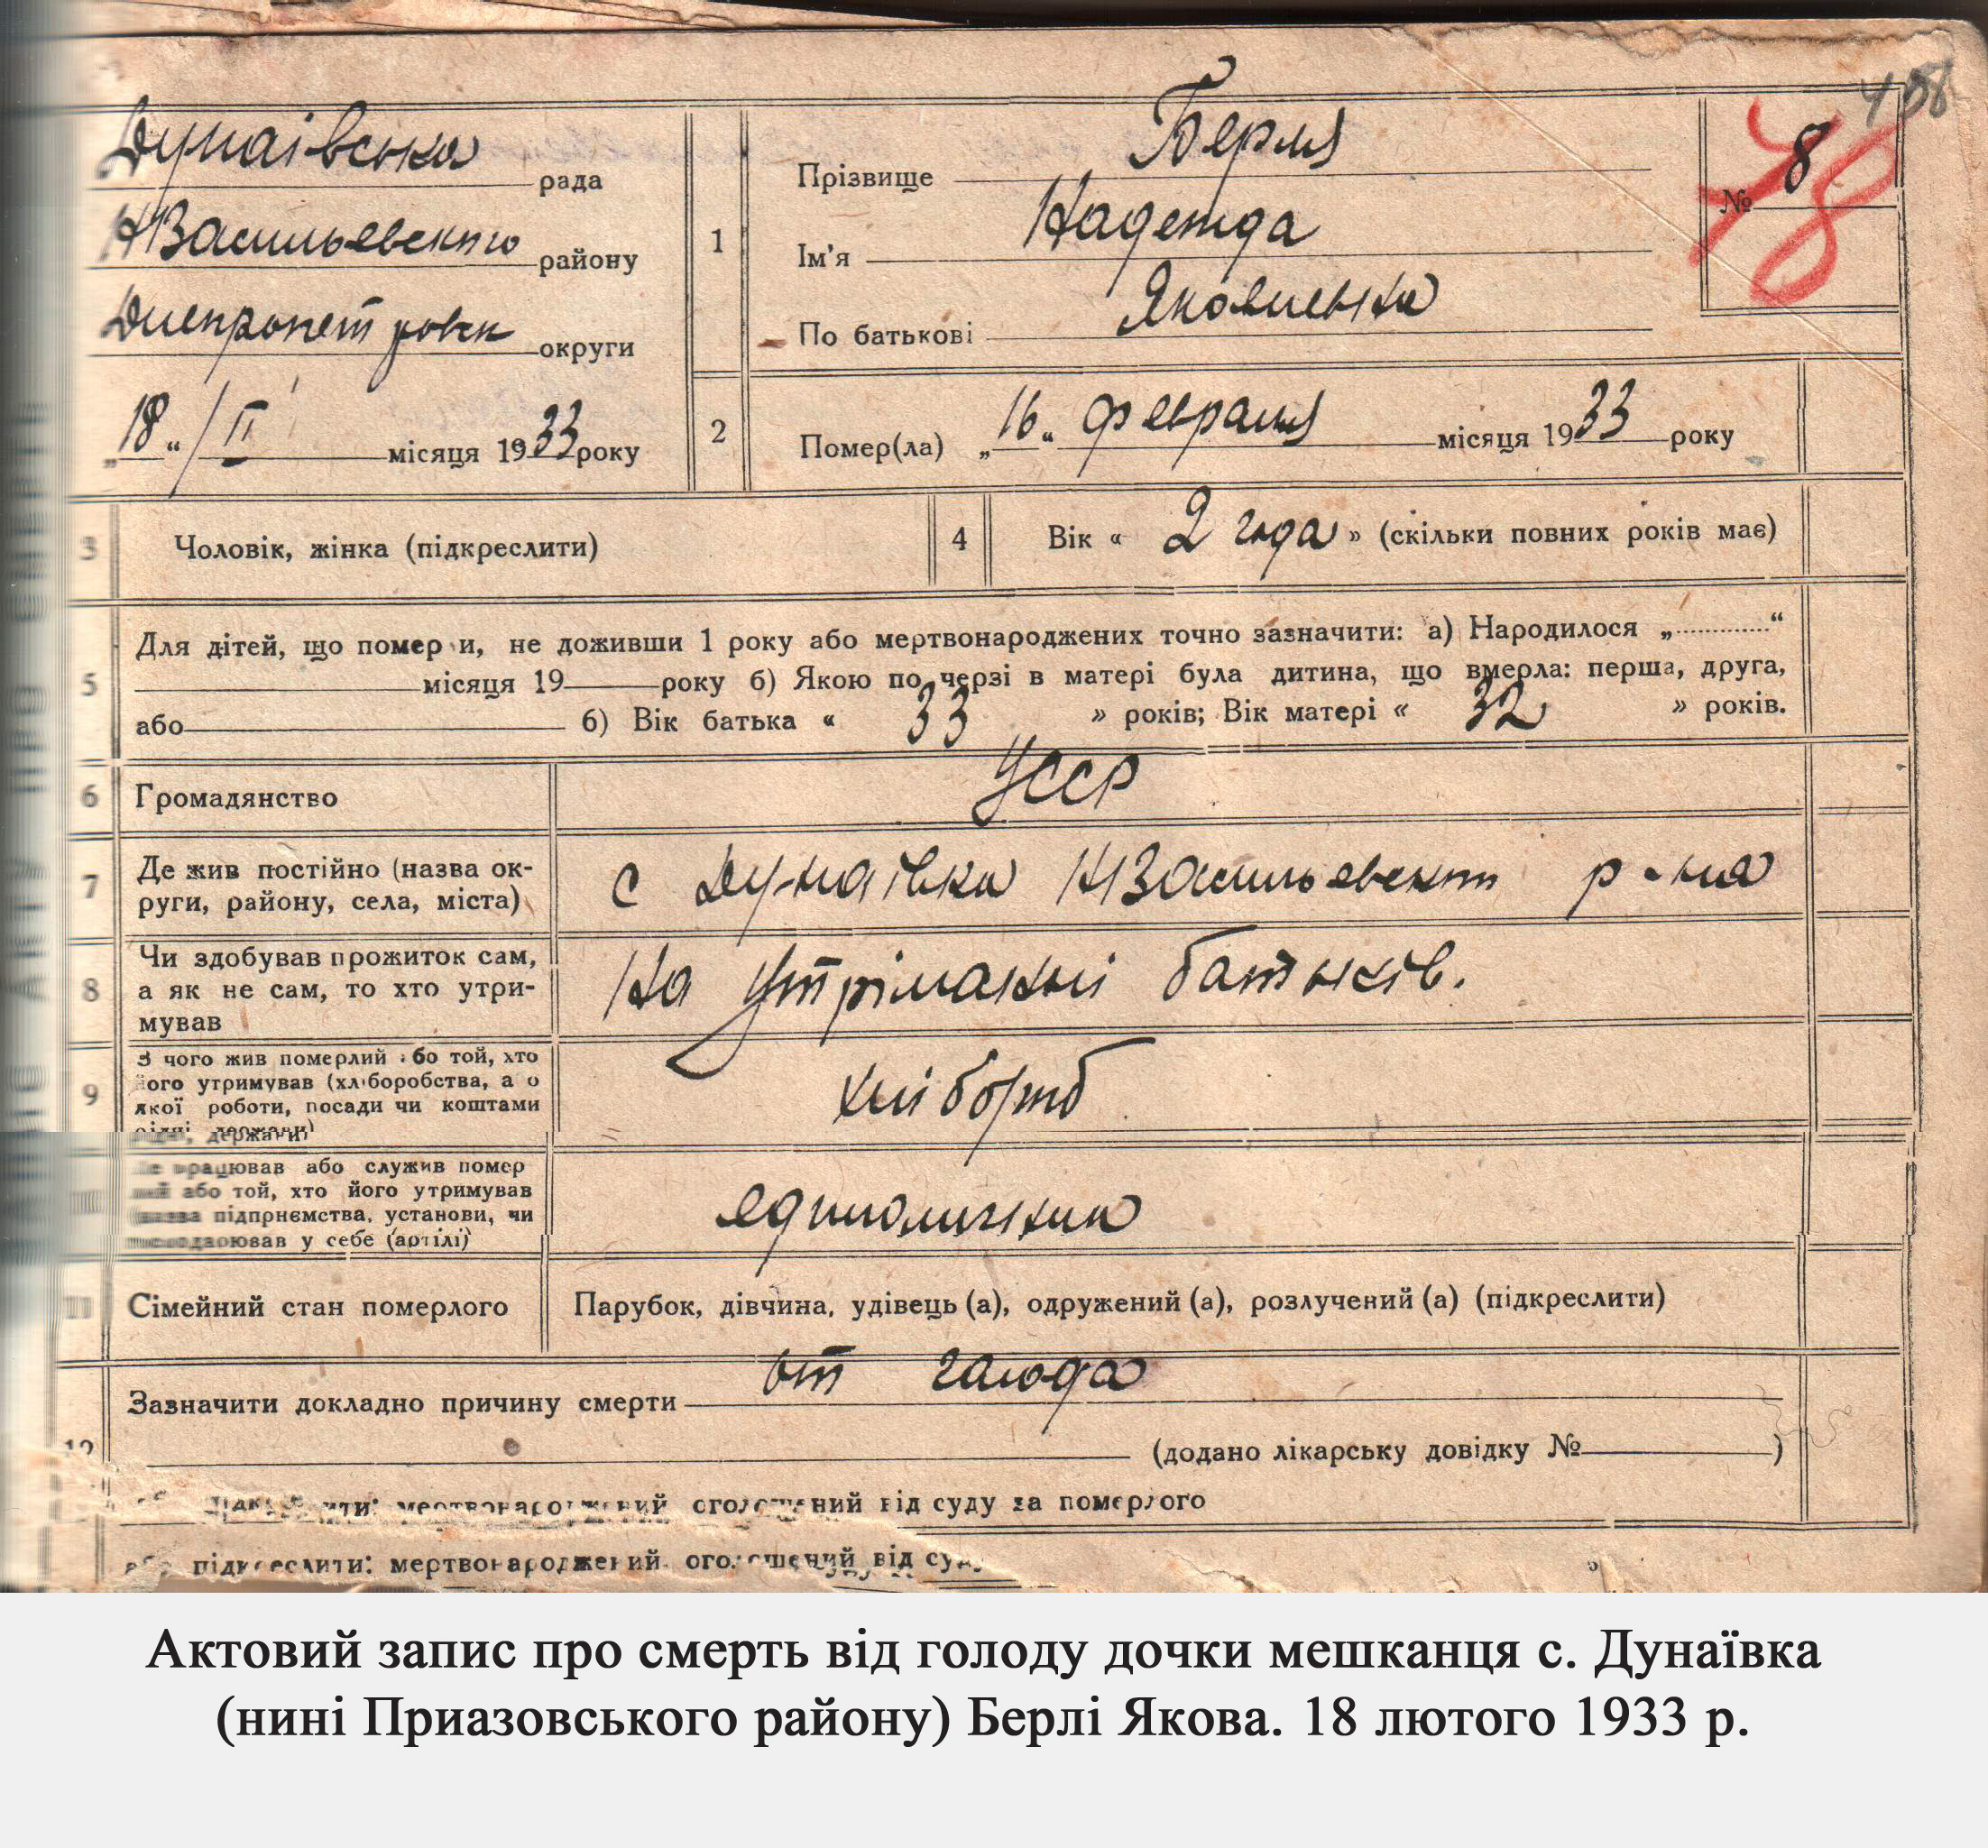 458
Дунаівська рада
НВасильевского району
Днепропетровск округи
„18“ / II місяця 1933 року
1
Прізвище Берля
Ім'я Надежда
По батькові Яковлевна
№ 8
78
2
Помер(ла) „16“ февраля місяця 1933 року
3
Чоловік, жінка (підкреслити)
4
Вік « 2 года » (скільки повних років має)
5
Для дітей, що помер и, не доживши 1 року або мертвонароджених точно зазначити: а) Народилося „............“
місяця 19 року б) Якою по черзі в матері була дитина, що вмерла: перша, друга,
або б) Вік батька « 33 » років; Вік матері « 32 » років.
6
Громадянство
УССР
7
Де жив постійно (назва ок-
руги, району, села, міста)
с Дунаівка НВасильевск р-на
8
Чи здобував прожиток сам,
а як не сам, то хто утри-
мував
На утріманьні батьків.
9
З чого жив померлий або той, хто
його утримував (хліборобства, а о
якої роботи, посади чи коштами
рідні, держави)
хлібороб
працював або служив помер
або той, хто його утримував
(назва підприємства, установи, чи
у себе (артілі)
единоличник
11
Сімейний стан померлого
Парубок, дівчина, удівець (а), одружений (а), розлучений (а) (підкреслити)
12
Зазначити докладно причину смерти от галода
(додано лікарську довідку № )
мертвонароджений оголошений від суду за померлого
або підкреслити: мертвонароджений оголошений від суду
Актовий запис про смерть від голоду дочки мешканця с. Дунаївка
(нині Приазовського району) Берлі Якова. 18 лютого 1933 р.